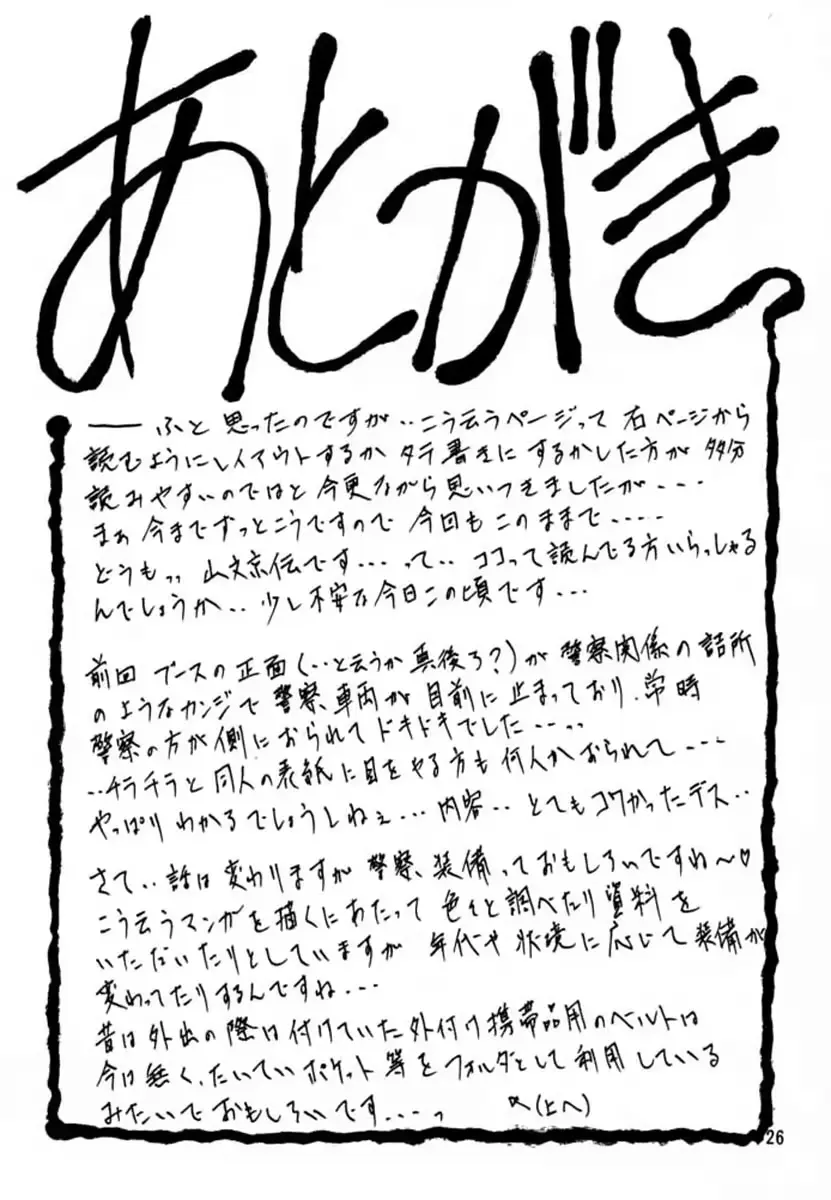 あとがき
──ふと 思ったのですが‥こう云うページって 右ページから
読むようにレイアウトするか タテ書きに するかした方が 多分
読みやすいのではと 今更ながら思いつきましたが・・・
まぁ 今までずっとこうですので 今回も このままで・・・・・
どうもっっ 山文京伝です・・・って‥ ココって読んでる方いらっしゃる
んでしょうか‥ 少し不安な今日この頃です・・・
前回 ブースの正面(‥と云うか真後ろ?)が 警察関係の詰所
のようなカンジで 警察車両が 目前に 止まっており、常時
警察の方が側に おられて ドキドキでした・・・っっ
‥チラチラと 同人の表紙に目をやる方も 何人か おられて・・・
やっぱり わかるでしょうしねぇ・・・内容‥ とてもコワかったデス‥
さて‥ 話は 変わりますが 警察装備っておもしろいですね〜♡
こう云うマンガを 描くにあたって 色々と調べたり 資料を
いただいたりとしていますが 年代や 状境に 応じて 装備が
変わってたりするんですね・・・
昔は 外出の際は付けていた外付け携帯品用のベルトは
今は無く、たいていポケット等をフォルダとして利用している
みたいで おもしろいです・・・・っ (上へ)
26